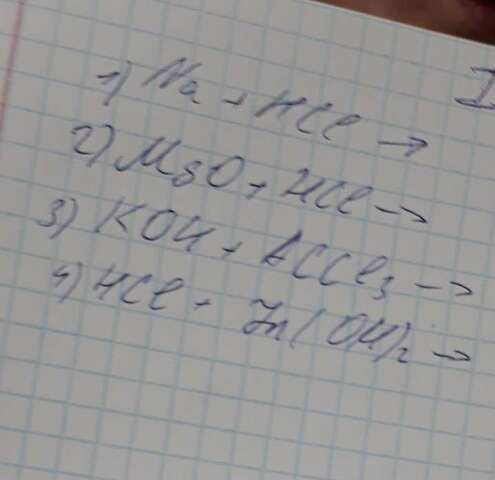 I
1) Na + HCl →
2) MgO + HCl →
3) KOH + AlCl₃ →
4) HCl + Zn(OH)₂ →